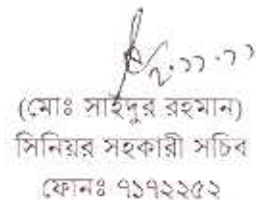 ২.১১.১১
(মোঃ সাইদুর রহমান)
সিনিয়র সহকারী সচিব
ফোনঃ ৭১৭২২৫২